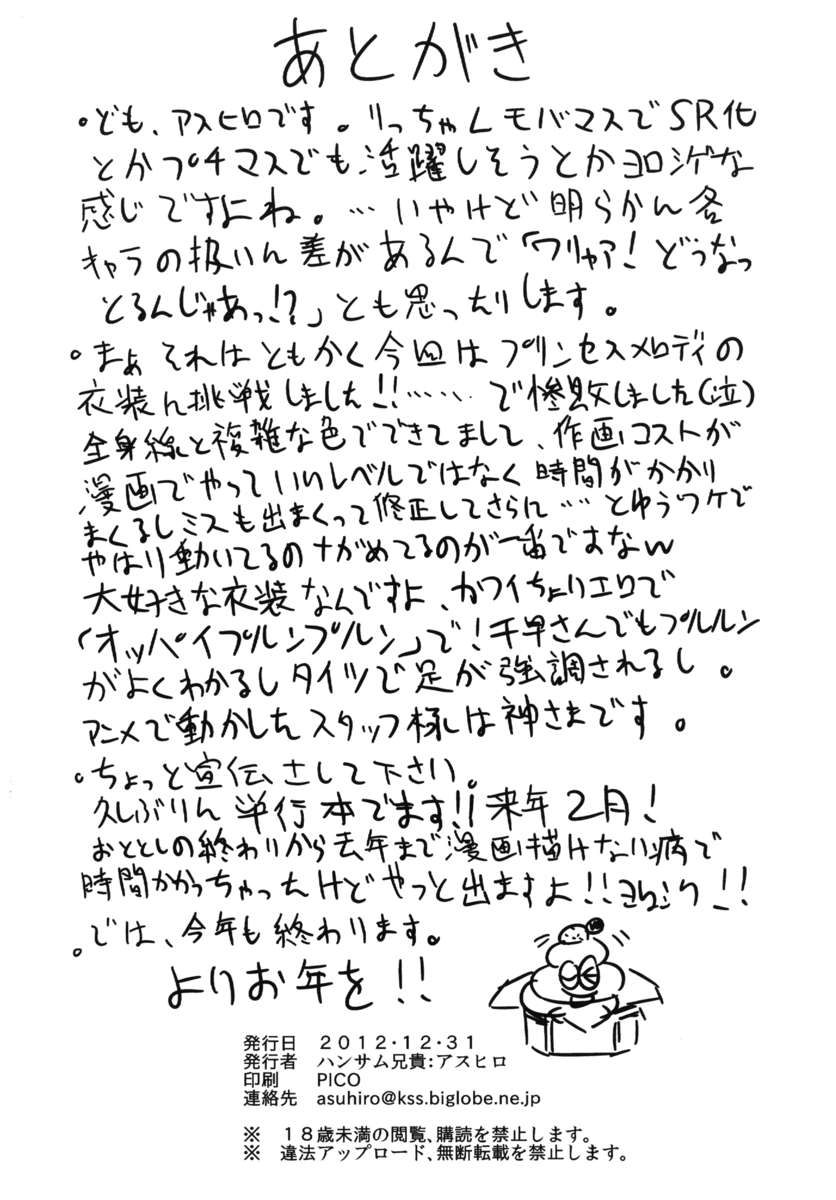 あとがき
・ども、アスヒロです。りっちゃんモバマスでSR化
とかプチマスでも活躍しそうとかヨロシゲな
感じですよね。…いやけど明らかん各
キャラの扱いん差があるんで「ワリャア!どうなっ
とるんじゃあっ!?」とも思ったりします。
・まぁそれはともかく今回はプリンセスメロディの
衣装ん挑戦しました!!……で惨敗しました(泣)
全身線と複雑な色でできてまして、作画コストが
漫画でやっていいレベルではなく時間がかかり
まくるしミスも出まくって修正してさらに…とゆうワケで
やはり動いてるのながめてるのが一番ですなw
大好きな衣装なんですよ、カワイイちょりエロで
「オッパイプルンプルン」で!千早さんでもプルルン
がよくわかるしタイツで足が強調されるし。
アニメで動かしたスタッフ様しは神さまです。
・ちょっと宣伝さして下さい。
久しぶりん単行本でます!!来年2月!
おととしの終わりから去年まで漫画描けない病で
時間かかっちゃったけどやっと出ますよ!!ヨロシク!!
・では、今年も終わります。
よりお年を!!
発行日 2012・12・31
発行者 ハンサム兄貴:アスヒロ
印刷 PICO
連絡先 asuhiro@kss.biglobe.ne.jp
※ 18歳未満の閲覧、購読を禁止します。
※ 違法アップロード、無断転載を禁止します。